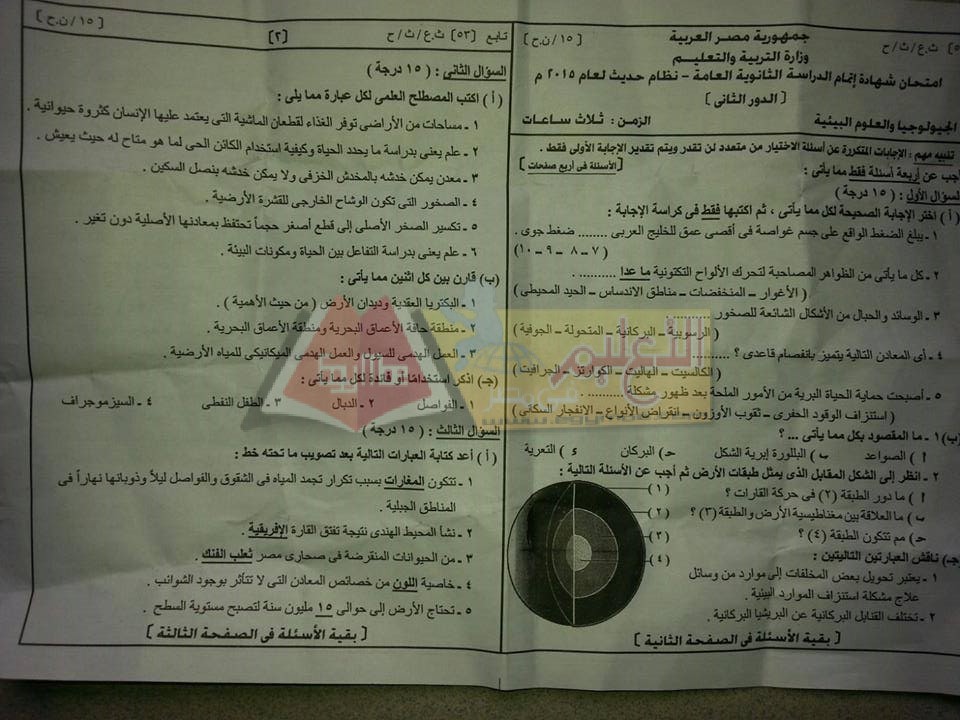 [ ١٥ / ن.ح ]
جمهورية مصر العربية
وزارة التربية والتعليم
ث.ع / ث / ح
امتحان شهادة إتمام الدراسة الثانوية العامة – نظام حديث لعام ٢٠١٥ م
( الدور الثانى )
الجيولوجيا والعلوم البيئية
الزمن : ثلاث ساعات
تنبيه مهم : الإجابات المتكررة عن أسئلة الاختيار من متعدد لن تقدر ويتم تقدير الإجابة الأولى فقط .
أجب عن أربعة أسئلة فقط مما يأتى :
[ الأسئلة فى أربع صفحات ]
السؤال الأول : ( ١٥ درجة )
( أ ) اختر الإجابة الصحيحة لكل مما يأتى ، ثم اكتبها فقط فى كراسة الإجابة :
١ - يبلغ الضغط الواقع على جسم غواصة فى أقصى عمق للخليج العربى ........ ضغط جوى .
( ٧ – ٨ – ٩ – ١٠ )
٢ - كل ما يأتى من الظواهر المصاحبة لتحرك الألواح التكتونية ما عدا .......... .
( الأغوار – المنخفضات – مناطق الاندساس – الحيد المحيطى )
٣ - الوسائد والحبال من الأشكال الشائعة للصخور ..........
( الرسوبية – البركانية – المتحولة – الجوفية )
٤ - أى المعادن التالية يتميز بانفصام قاعدى ؟ ..........
( الكالسيت – الهاليت – الكوارتز – الجرافيت )
٥ - أصبحت حماية الحياة البرية من الأمور الملحة بعد ظهور مشكلة .......... .
( استنزاف الوقود الحفرى – ثقوب الأوزون – انقراض الأنواع – الانفجار السكانى )
(ب) ١ - ما المقصود بكل مما يأتى ... ؟
أ ) الصواعد ب) البللورة إبرية الشكل حـ) البركان ء ) التعرية
٢ - انظر إلى الشكل المقابل الذى يمثل طبقات الأرض ثم أجب عن الأسئلة التالية :
أ ) ما دور الطبقة (٢) فى حركة القارات ؟
ب) ما العلاقة بين مغناطيسية الأرض والطبقة (٣) ؟
حـ) مم تتكون الطبقة (٤) ؟
(١)
(٢)
(٣)
(٤)
(جـ) ناقش العبارتين التاليتين :
١ - يعتبر تحويل بعض المخلفات إلى موارد من وسائل
علاج مشكلة استنزاف الموارد البيئية .
٢ - تختلف القنابل البركانية عن البريشيا البركانية .
[ بقية الأسئلة فى الصفحة الثانية ]
[ ١٥ / ن.ح ]
[٢]
تابع [٥٣] ث.ع / ث / ح
السؤال الثانى : ( ١٥ درجة )
( أ ) اكتب المصطلح العلمى لكل عبارة مما يلى :
١ - مساحات من الأراضى توفر الغذاء لقطعان الماشية التى يعتمد عليها الإنسان كثروة حيوانية .
٢ - علم يعنى بدراسة ما يحدد الحياة وكيفية استخدام الكائن الحى لما هو متاح له حيث يعيش .
٣ - معدن يمكن خدشه بالمخدش الخزفى ولا يمكن خدشه بنصل السكين .
٤ - الصخور التى تكون الوشاح الخارجى للقشرة الأرضية .
٥ - تكسير الصخر الأصلى إلى قطع أصغر حجماً تحتفظ بمعادنها الأصلية دون تغير .
٦ - علم يعنى بدراسة التفاعل بين الحياة ومكونات البيئة .
(ب) قارن بين كل اثنين مما يأتى :
١ - البكتريا العقدية وديدان الأرض ( من حيث الأهمية ) .
٢ - منطقة حافة الأعماق البحرية ومنطقة الأعماق البحرية .
٣ - العمل الهدمى للسيول والعمل الهدمى الميكانيكى للمياه الأرضية .
(جـ) اذكر استخدامًا أو فائدة لكل مما يأتى :
١ - الفواصل ٢ - الدبال ٣ - الطفل النفطى ٤ - السيزموجراف
السؤال الثالث : ( ١٥ درجة )
( أ ) أعد كتابة العبارات التالية بعد تصويب ما تحته خط :
١ - تتكون المغارات بسبب تكرار تجمد المياه فى الشقوق والفواصل ليلاً وذوبانها نهاراً فى
المناطق الجبلية .
٢ - نشأ المحيط الهندى نتيجة تفتق القارة الإفريقية .
٣ - من الحيوانات المنقرضة فى صحارى مصر ثعلب الفنك .
٤ - خاصية اللون من خصائص المعادن التى لا تتأثر بوجود الشوائب .
٥ - تحتاج الأرض إلى حوالى ١٥ مليون سنة لتصبح مستوية السطح .
[ بقية الأسئلة فى الصفحة الثالثة ]